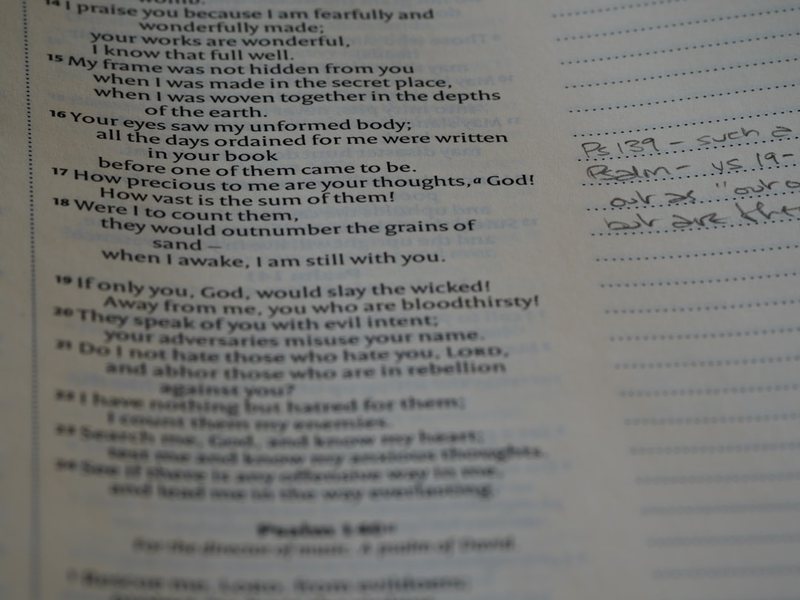 womb.
14 I praise you because I am fearfully and
wonderfully made;
your works are wonderful,
I know that full well.
15 My frame was not hidden from you
when I was made in the secret place,
when I was woven together in the depths
of the earth.
16 Your eyes saw my unformed body;
all the days ordained for me were written
in your book
before one of them came to be.
17 How precious to me are your thoughts,a God!
How vast is the sum of them!
18 Were I to count them,
they would outnumber the grains of
sand —
when I awake, I am still with you.
19 If only you, God, would slay the wicked!
Away from me, you who are bloodthirsty!
20 They speak of you with evil intent;
your adversaries misuse your name.
21 Do I not hate those who hate you, LORD,
and abhor those who are in rebellion
against you?
22 I have nothing but hatred for them;
I count them my enemies.
23 Search me, God, and know my heart;
test me and know my anxious thoughts.
24 See if there is any offensive way in me,
and lead me in the way everlasting.
Psalm 140
For the director of music. A psalm of David.
Ps 139 – such a
Psalm – vs 19 –
out as "out o
but are the